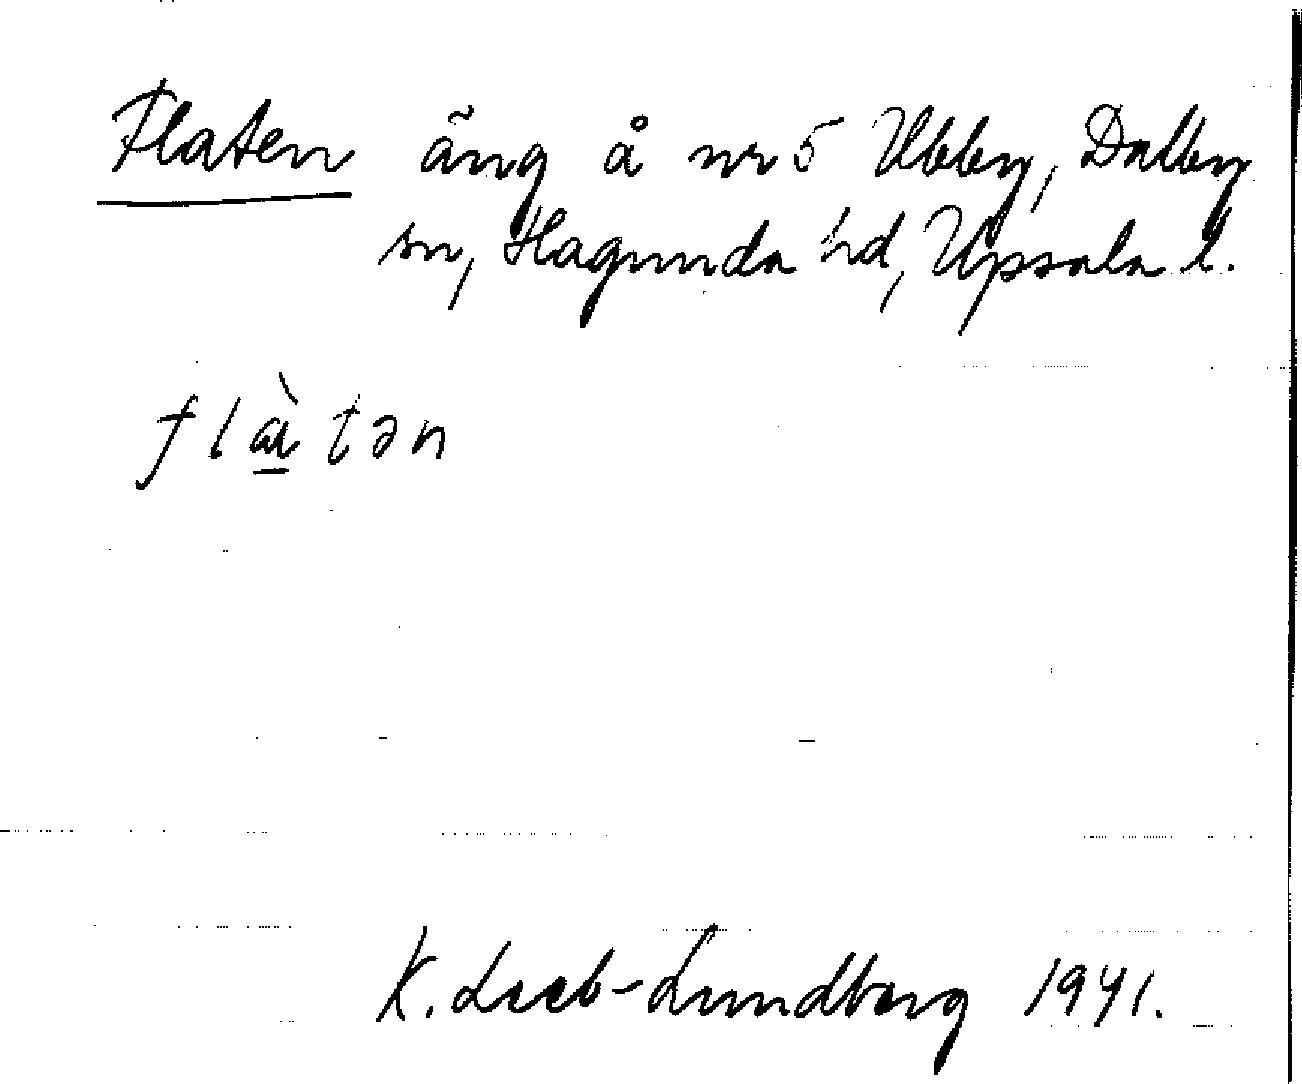 Flaten äng å nr 5 Ubby, Dalby
sn, Hagunda hd, Uppsala l.
flàtən
K. Leeb-Lundberg 1941.